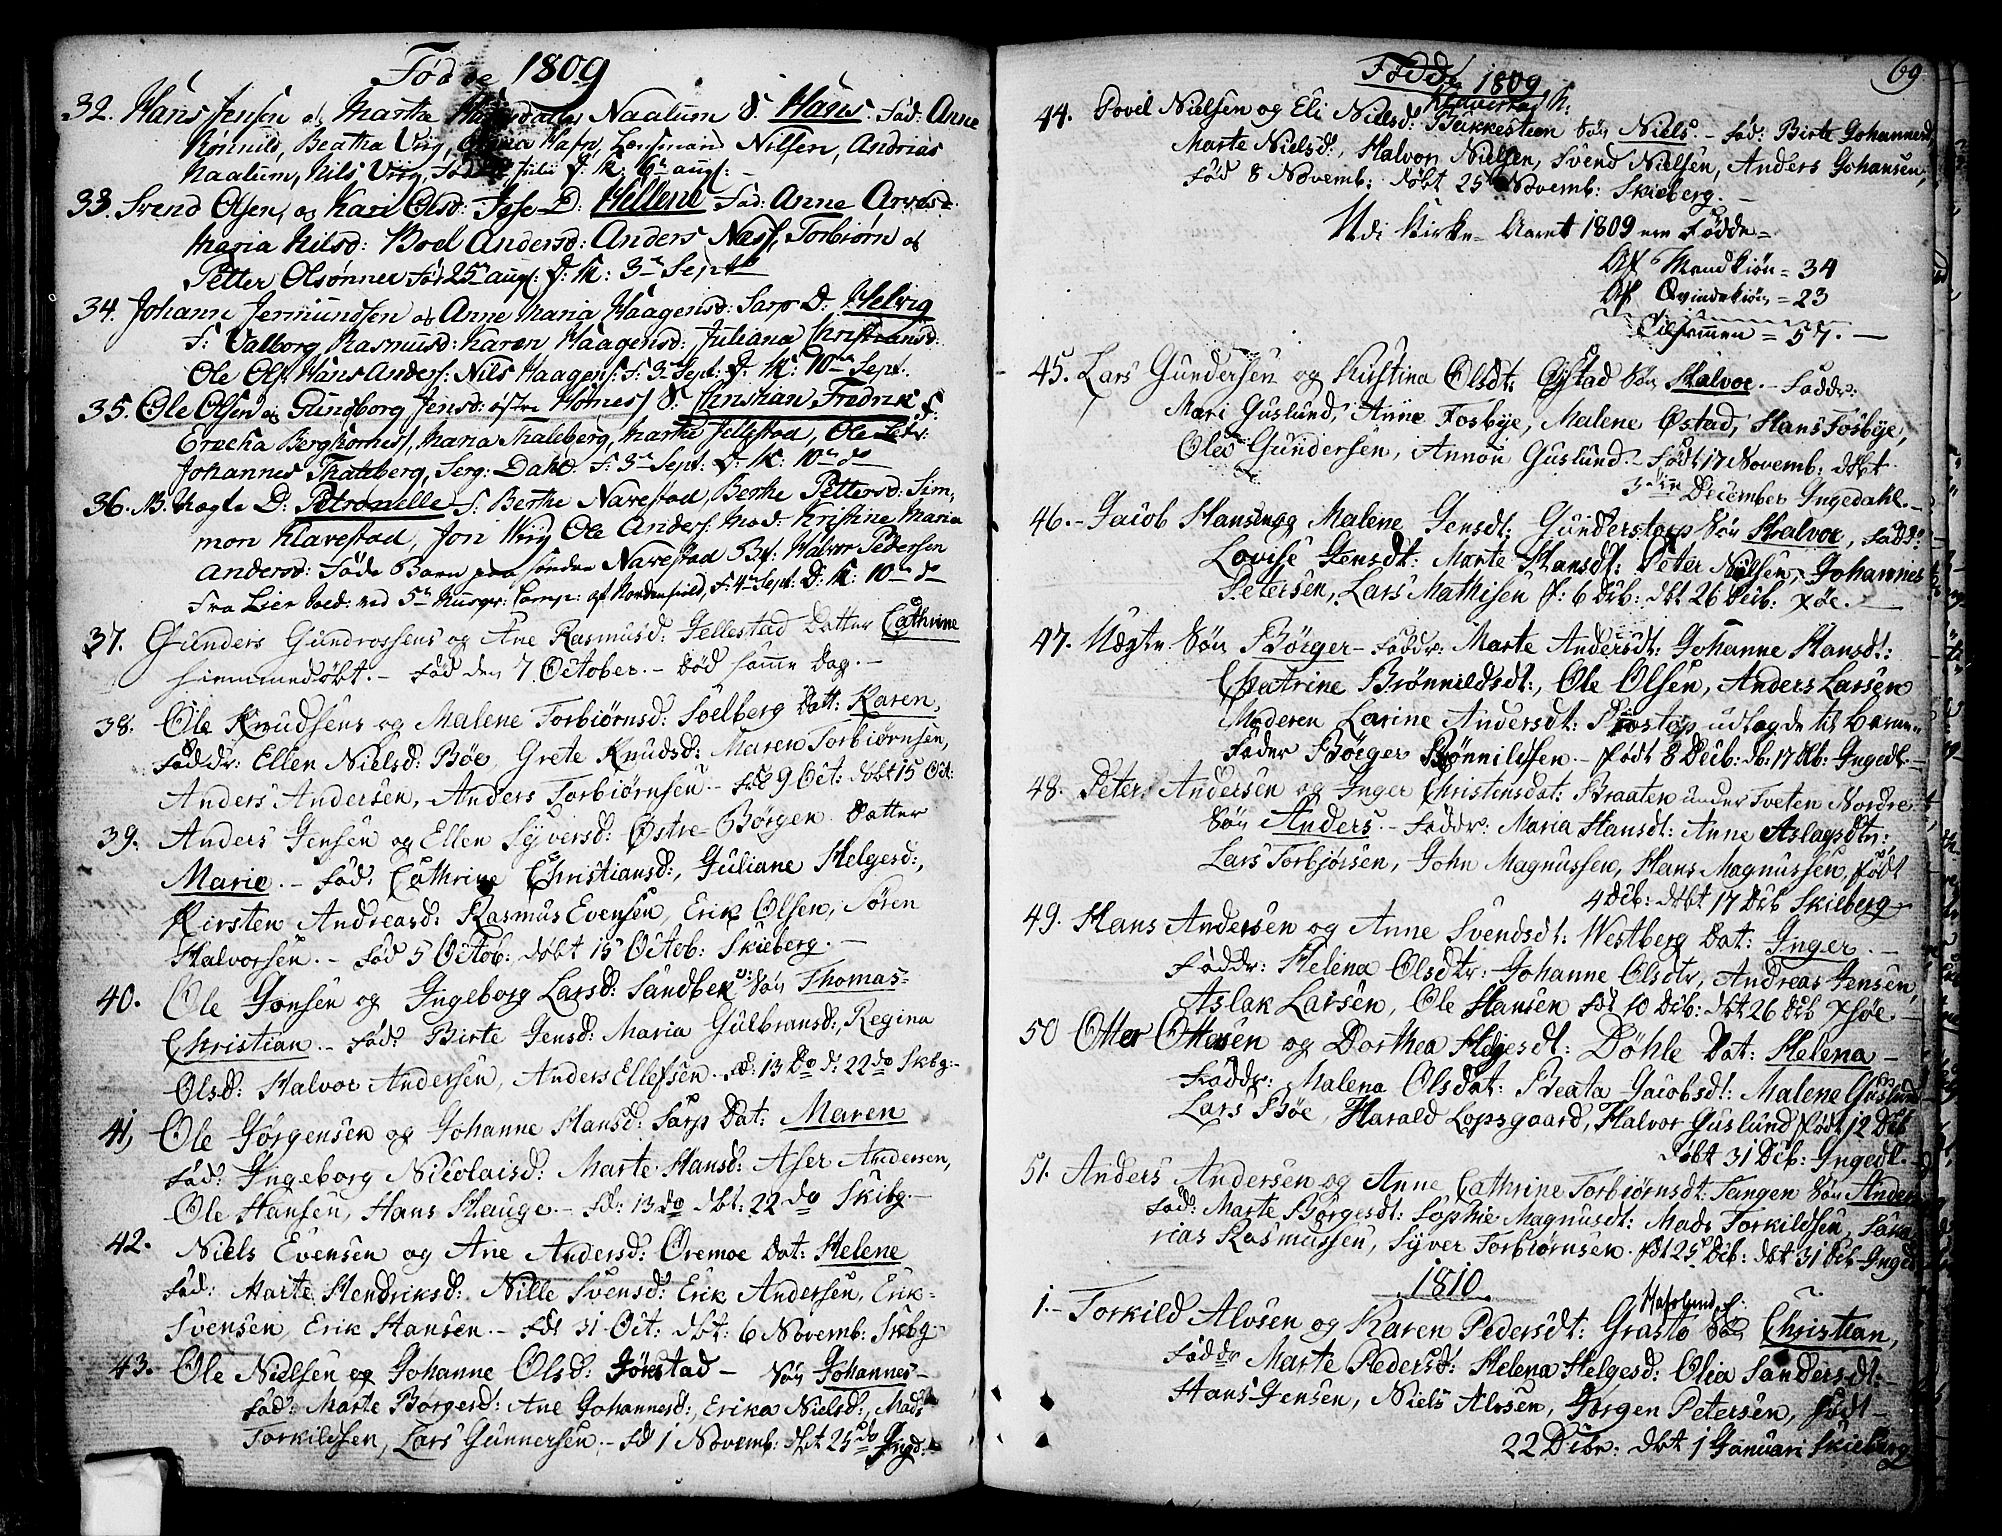 Fødde 1809
32. Hans Jensen og Marta Naalum S. Hans. fad: Anne
Rønnild, Beatha Viig, Hafn, Lensmand Nilsen, Andrias
Naalum, Nils Viig, Julii D: K: 6te aug:
33. Svend Olsen, og Kari Olsd: D: Hellene Fad: Anne Arvesd:
Maria Nilsd: Boel Andersd: Anders Næss, Torbiørn og
Petter Olsønner Fød 25de aug: D: K: 3de Sept
34. Johann Jermundsen og Anne Maria Haagensd: Sarp D: Helvig
F: Valborg Rasmusd: Karen Haagensd: Juliana Christiansd:
Ole Ols: Hans Anders: Nils Haagens: f: 3de Sept: D: K: 10de Sept.
35. Ole Olsen og Gundborg Jensd: østre Hornes S. Christian Fredrik F:
Berg Hornes, Maria Thaleberg, Marthe Jellestad, Ole
Johannes Thaleberg, Serg: Dahl. F: 3de Sept: D: K: 10de do
36. B. Uægte D: Petronelle F: Berthe Navestad, Berthe Pettersd: Sim,
mon Klavestad, Jon Viig Ole Anders: Mod: Kristine Maria
Andersd: Føde Barn paa søndre Navestad B.f: Halvor Pedersen
Fra Lier Sold: ved 5te Musqr: Comp: af Nordenfield, F: 4de Sept: D: K: 10de do
37. Gunders Gundrossens og Ane Rasmusd: Jellestad Datter Cathrine
hiemmedøbt. – Fød den 7 October. – Død samme Dag. –
38. Ole Knudsens og Malene Torbiørnsd: Soelberg Datt: Karen,
Faddr: Ellen Nielsd: Bøe, Grete Knudsd: Maren Torbiørnsen,
Anders Andersen, Anders Torbiørnsen – fød 9 Oct: døbt 15 Oct:
39. Anders Jensen og Ellen Syversd: Østre Børgen Datter
Marie. – Fad: Cathrine Christiansd:, Juliane Helgesd:,
Kirsten Andreasd: Rasmus Evensen, Erik Olsen, Søren
Halvorsen. – Fød 5 Octob: døbt 15 Octob: Skieberg. –
40. Ole Jonsen og Ingeborg Larsd: Sandbek Søn Thomas-
Christian. – Fad: Birte Jensd: Maria Gulbransd:, Regina
Olsd: Halvor Andersen, Anders Ellefsen. Fd: 13 Do d: 22 do Skbg: –
41, Ole Jørgensen og Johanne Hansd: Sarp Dat: Maren
Fad: Ingeborg Nicolaisd: Marte Hansd: Aser Andersen,
Ole Hansen, Hans Hauge. – Fd: 13 do dbt: 22 do Skibg. –
42. Niels Evensen og Ane Andersd: Oremoe Dat: Helene
Fad: Marte Hendriksd: Nille Svensd: Erik Andersen, Erik-
Svensen, Erik Hansen. – Fdt 31 Oct: dbt: 6 Novemb: Skbg –
43. Ole Nielsen og Johanne Olsd: Jørstad – Søn Johannes –
Fad: Marte Børgesd: Ane Johannesd:, Erika Nielsd:, Mads
Torkildsen, Lars Gunnersen. – Fd 1 Novemb: dbt 25 do Ingd: –
Fødde 1809
69
Klavestad N:
44. Povel Nielsen og Eli Nielsd: Bukkesteen Søn Niels. – Fad: Birte Johannesd,
Marte Nielsd:, Halvor Nielsen, Svend Nielsen, Anders Johansen,
Fød 8 Novemb: døbt 25 Novemb: Skieberg. –
Udi Kirke-Aaret 1809 ere Fødde =
Af Mandkiøn = 34
Af Qvindekiøn = 23
Tilsammen = 57. –
45. Lars Gundersen og Kirstina Olsdt: Østad Søn Halvor. – Faddr:
Mari Guslund, Anne Fosbye, Malene Østad, Hans Fosbye,
Ole Gundersen, Annon Guslund. – Født 17 Novemb: døbt
3die December Ingedahl. –
46. – Jacob Hansen og Malene Jensdt: Gunderstorp Søn Halvor, Fadd:
Lovise Jensdt: Marte Hansdt: Peter Nielsen, Johannes
Petersen, Lars Mathisen f: 6 Dcb: dbt 26 Decb: –
47. Uægte Søn Børger – Faddr: Marte Andersdt: Johanne Hansdt:
Chatrine Brønnildsdt:, Ole Olsen, Anders Larsen
Moderen Larine Andersdt: udlagde til Barne-
Fader Børger Brønnildsen. – født 8 Decb: db: 17 Db: Ingedl –
48. Peter Andersen og Inger Christensdat: Braaten under Tveten Nordre
Søn Anders. – Faddr: Maria Hansdt: Anne Aslagsdtr;
Lars Torbjørsen, John Magnussen, Hans Magnussen, født
4 Dcb: døbt 17 Dcb Skieberg
49. Hans Andersen og Anne Svendsdt: Westberg Dat: Inger. –
Faddr: Helena Olsdtr: Johanne Olsdtr, Andreas Jensen,
Aslak Larsen, Ole Hansen Fdt 10 Dcb: dbt 26 Dcb –
50 Otter Ottesen og Dorthea Helgesdt: Døhle Dat: Helena –
Faddr: Malena Olsdat: Beata Jacobsdt: Malene Guslund
Lars Bøe, Harald Lopsgaard, Halvor Guslund født 12 Dcb
døbt 31 Dcb: Ingedl. –
51. Anders Andersen og Anne Cathrine Torbiørnsdt: Tangen Søn Anders
Fad: Marte Børgesdt: Sophie Magnusdt: Mads Torkildsen,
rias Rasmussen, Syver Torbiørnsen. fdt 25 Dcb: dbt 31 Dcb Inged
1810
Hafslund E:
1. – Torkild Alvsen og Karen Pedersdt: Grastø Søn Christian,
Faddr Marte Pedersd: Helena Helgesd: Olea Sandersdt: –
Hans Jensen, Niels Alvsen, Jørgen Petersen, født –
22 Dcbr: dbt 1 Januari Skieberg